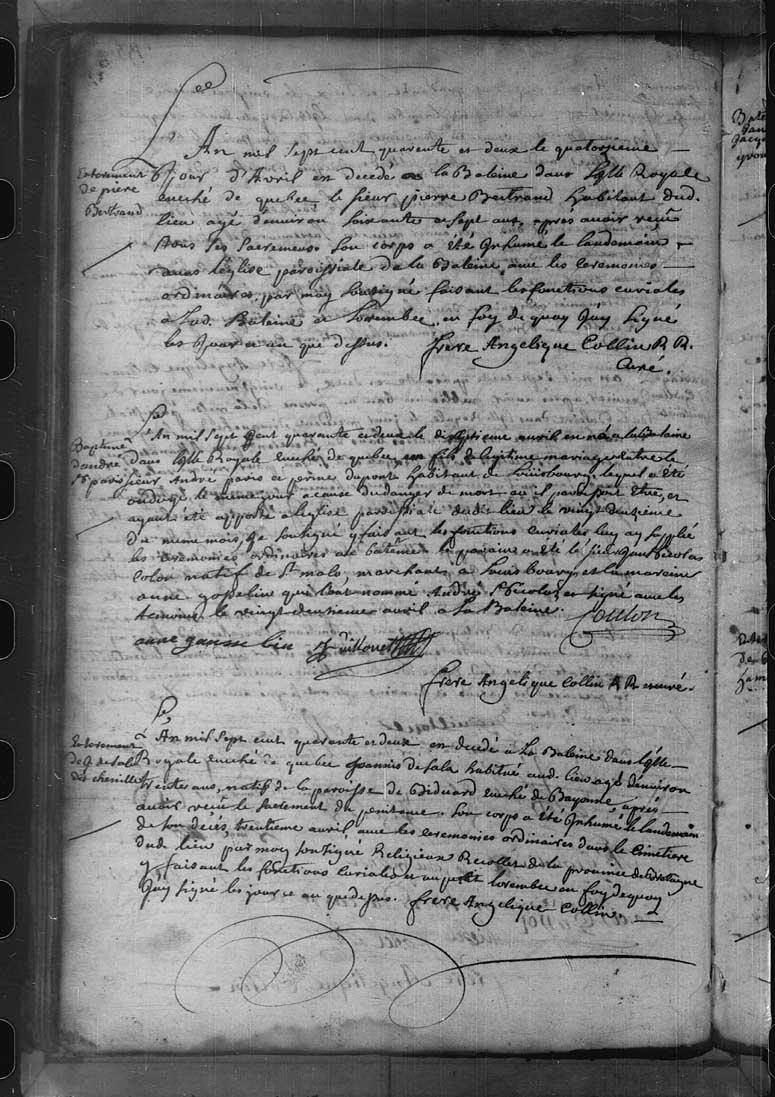 L'An mil sept cent quarente et deux le quatorzieme
Enterement
de piere
Bertrand
jour d'Avril est decedé a la Baleine dans l'isle Royale
evesché de quebec le sieur pierre Bertrand habitant dud.
lieu agé d'environ soixante et sept ans, apres avoir receu
tous ses sacremens. Son corps a été Inhumé le landemain
dans l'église paroissiale de la Baleine avec les ceremonies
ordinaires par moy soussigné faisant les fonctions curiales
a Lad. Baleine et Lorembec, en foy de quoy j'ay signé
les jour et an que dessus. frere Angelique Collin R R.
Curé.
L'An mil sept Cent quarante et deux le dix septieme avril est né a la Baleine
Baptême
d'andré
paris
dans l'isle Royale evesché de quebec, un fils de legitime mariage entre le
sieur André paris et perine dupont habitant de Louisbourg, lequel a été
ondoyé le même jour a cause du danger de mort ou il paroissoit être, et
ayant été apporté a l'eglise paroissiale dudit lieu le vingt deuxieme
du meme mois, je soussigné y faisant les fonctions curiales luy ay supplié
les ceremonies ordinaires au batême le parain a été le sieur jean Nicolas
colon natif de St malo, marchant a Louisbourg, et la mareine
anne gosseline qui l'ont nommé André Nicolas, et signé avec les
temoins le vingt deuxieme avril a La Baleine. Coulon
anne gausse lin
frere Angelique Collin R R curé.
L'An mil sept cent quarante et deux est decedé a La Baleine dans l'isle
Enterement
de J. de Sala
Royale evesché de quebec Joannis de Sala habitué aud. lieu agé d'environ
trente ans, natif de la paroisse de Bidard evesché de Bayonne, aprés
avoir receu le sacrement de penitence. Son corps a été Inhumé le landemain
de son déces, trentieme avril avec les ceremonies ordinaires dans le cimetiere
dud. lieu par moy soussigné Religieux Recollet de la province de Bretagne
y faisant les fonctions curiales et au petit Lorembec en foy de quoy
j'ay signé les jour et an que dessus. frere Angelique Collin